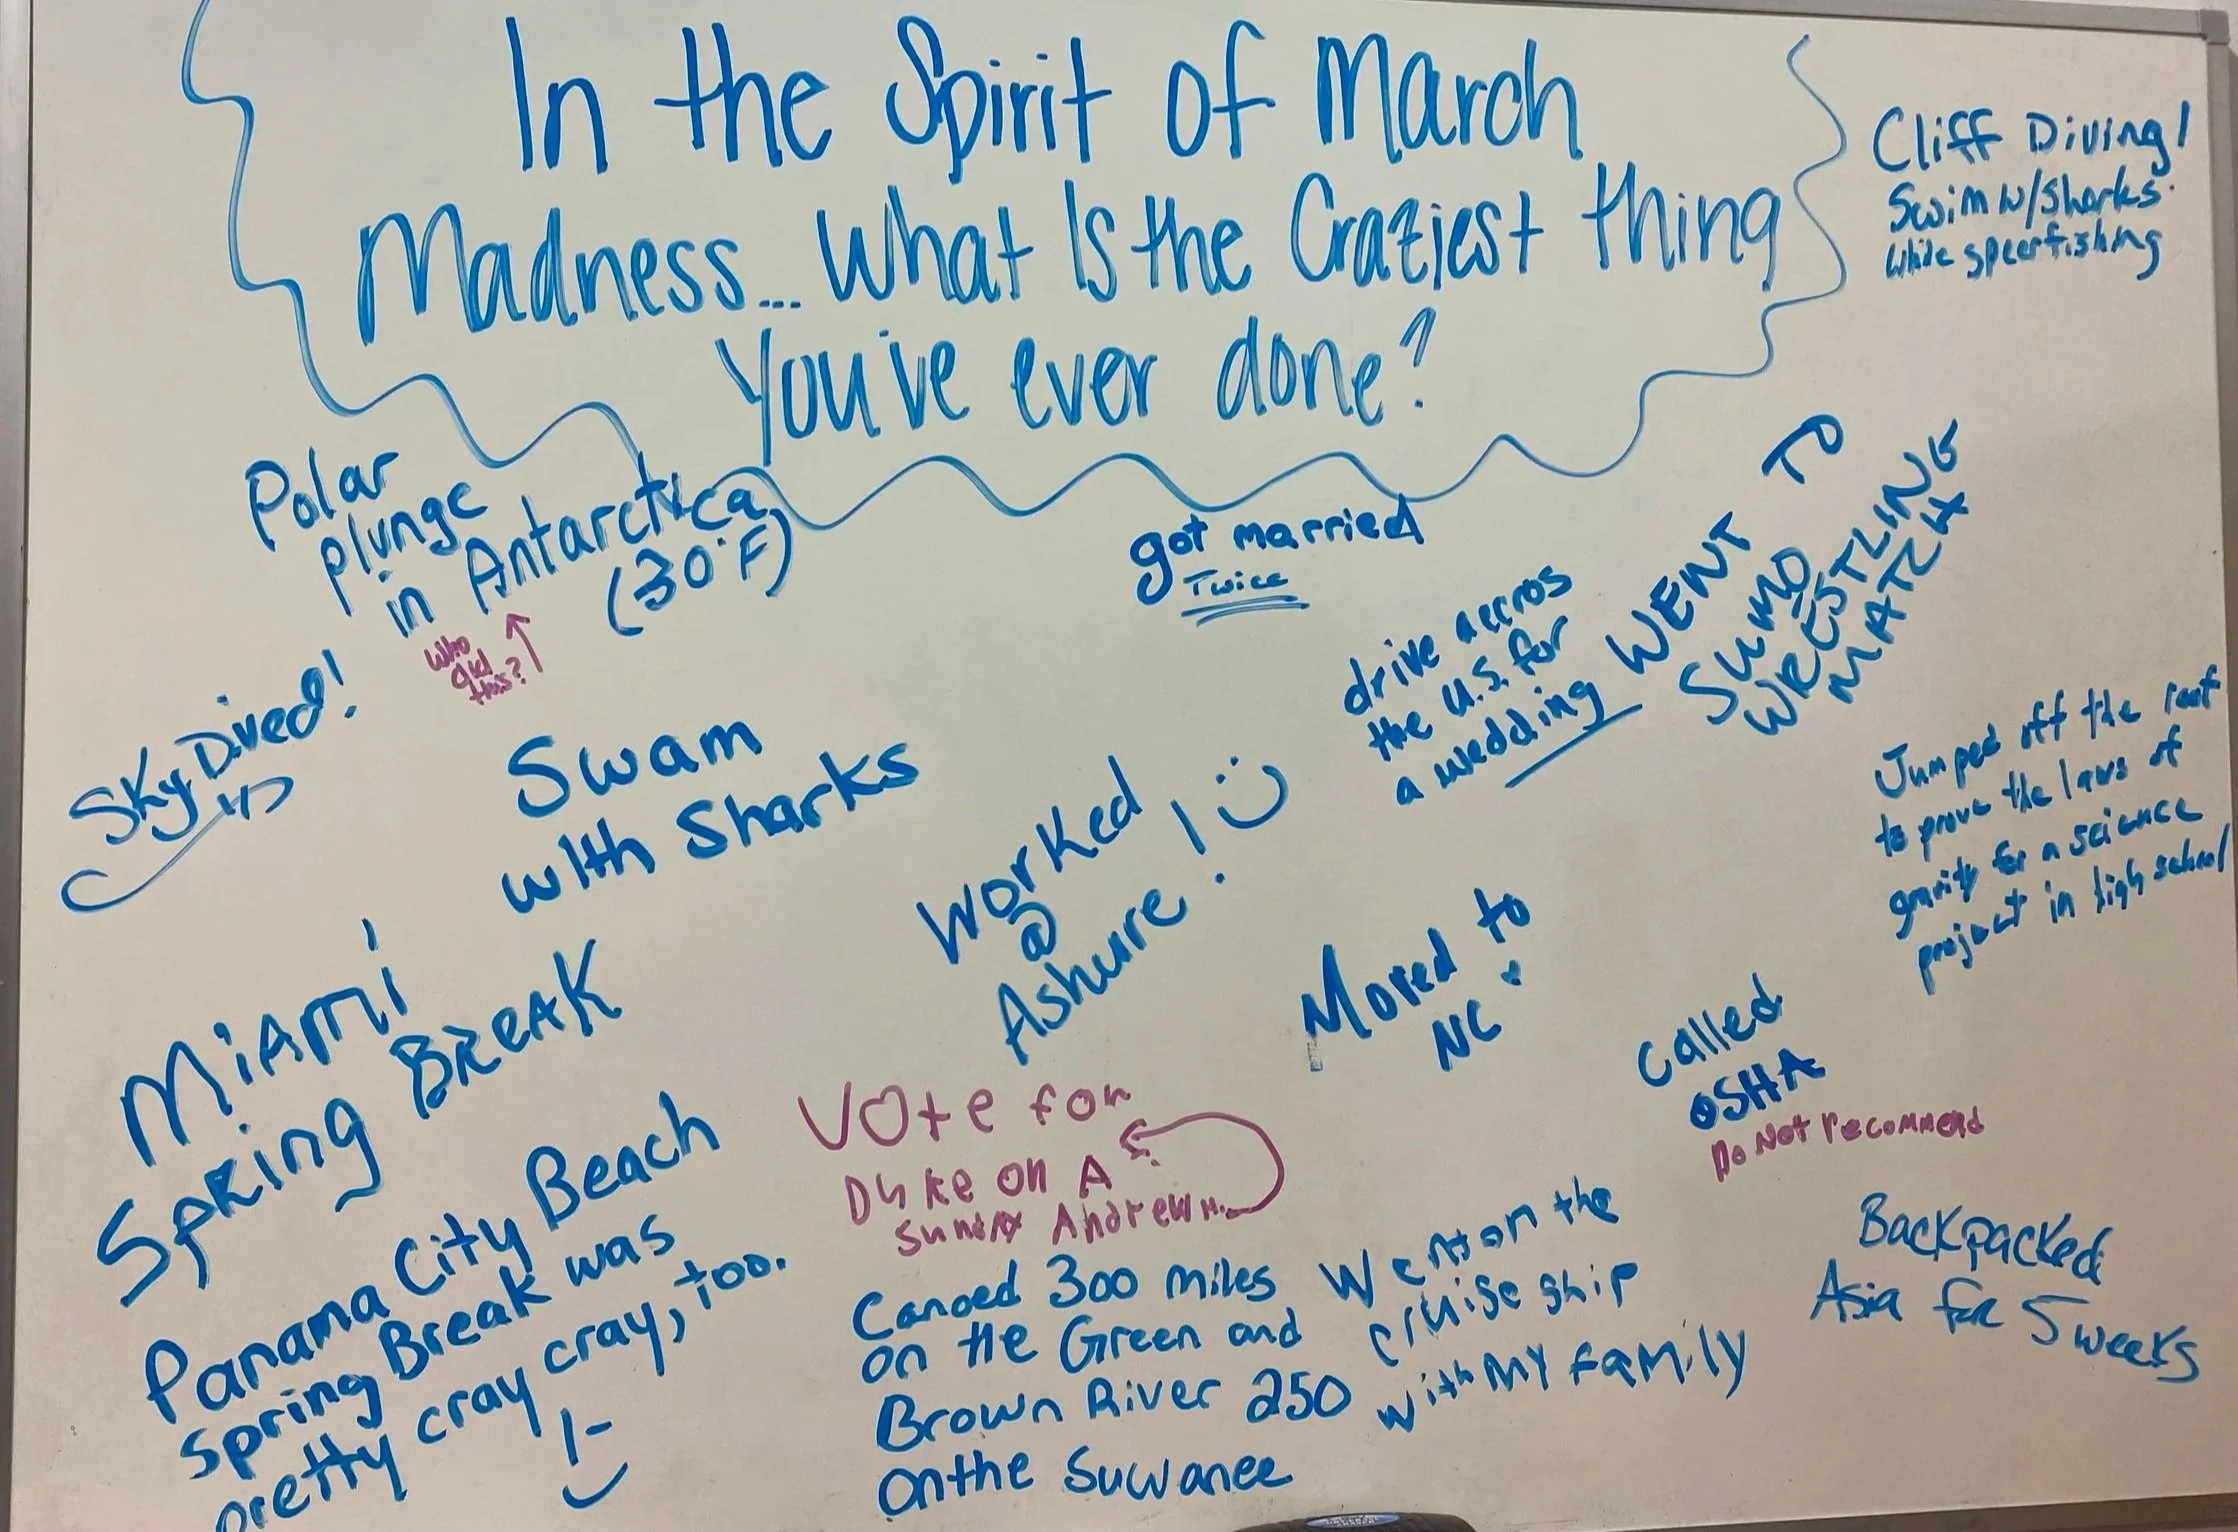 In the Spirit of March
Madness... What Is the Craziest thing
You've ever done?
Cliff Diving!
Swim w/sharks
while speerfishing
Polar
plunge
in Antarctica
(30°F)
Who
did
this?
got married
Twice
drive accros
the U.S. for
a wedding
WENT TO
SUMO
WRESTLING
MATCH
SkyDived!
Swam
with Sharks
Worked
@
Ashure!
Jumped off the roof
to prove the laws of
gravity for a science
project in high school
Moved to
NC
Called
OSHA
Do Not recommend
MiAmi
SpRing BReAK
Panama City Beach
Spring Break was
pretty cray cray, too.
Vote for
Duke on A
Andrew H.
Canoed 300 miles
on the Green and
Brown River 250
on the Suwanee
Went on the
cruise ship
with My family
Backpacked
Asia for 5 weeks